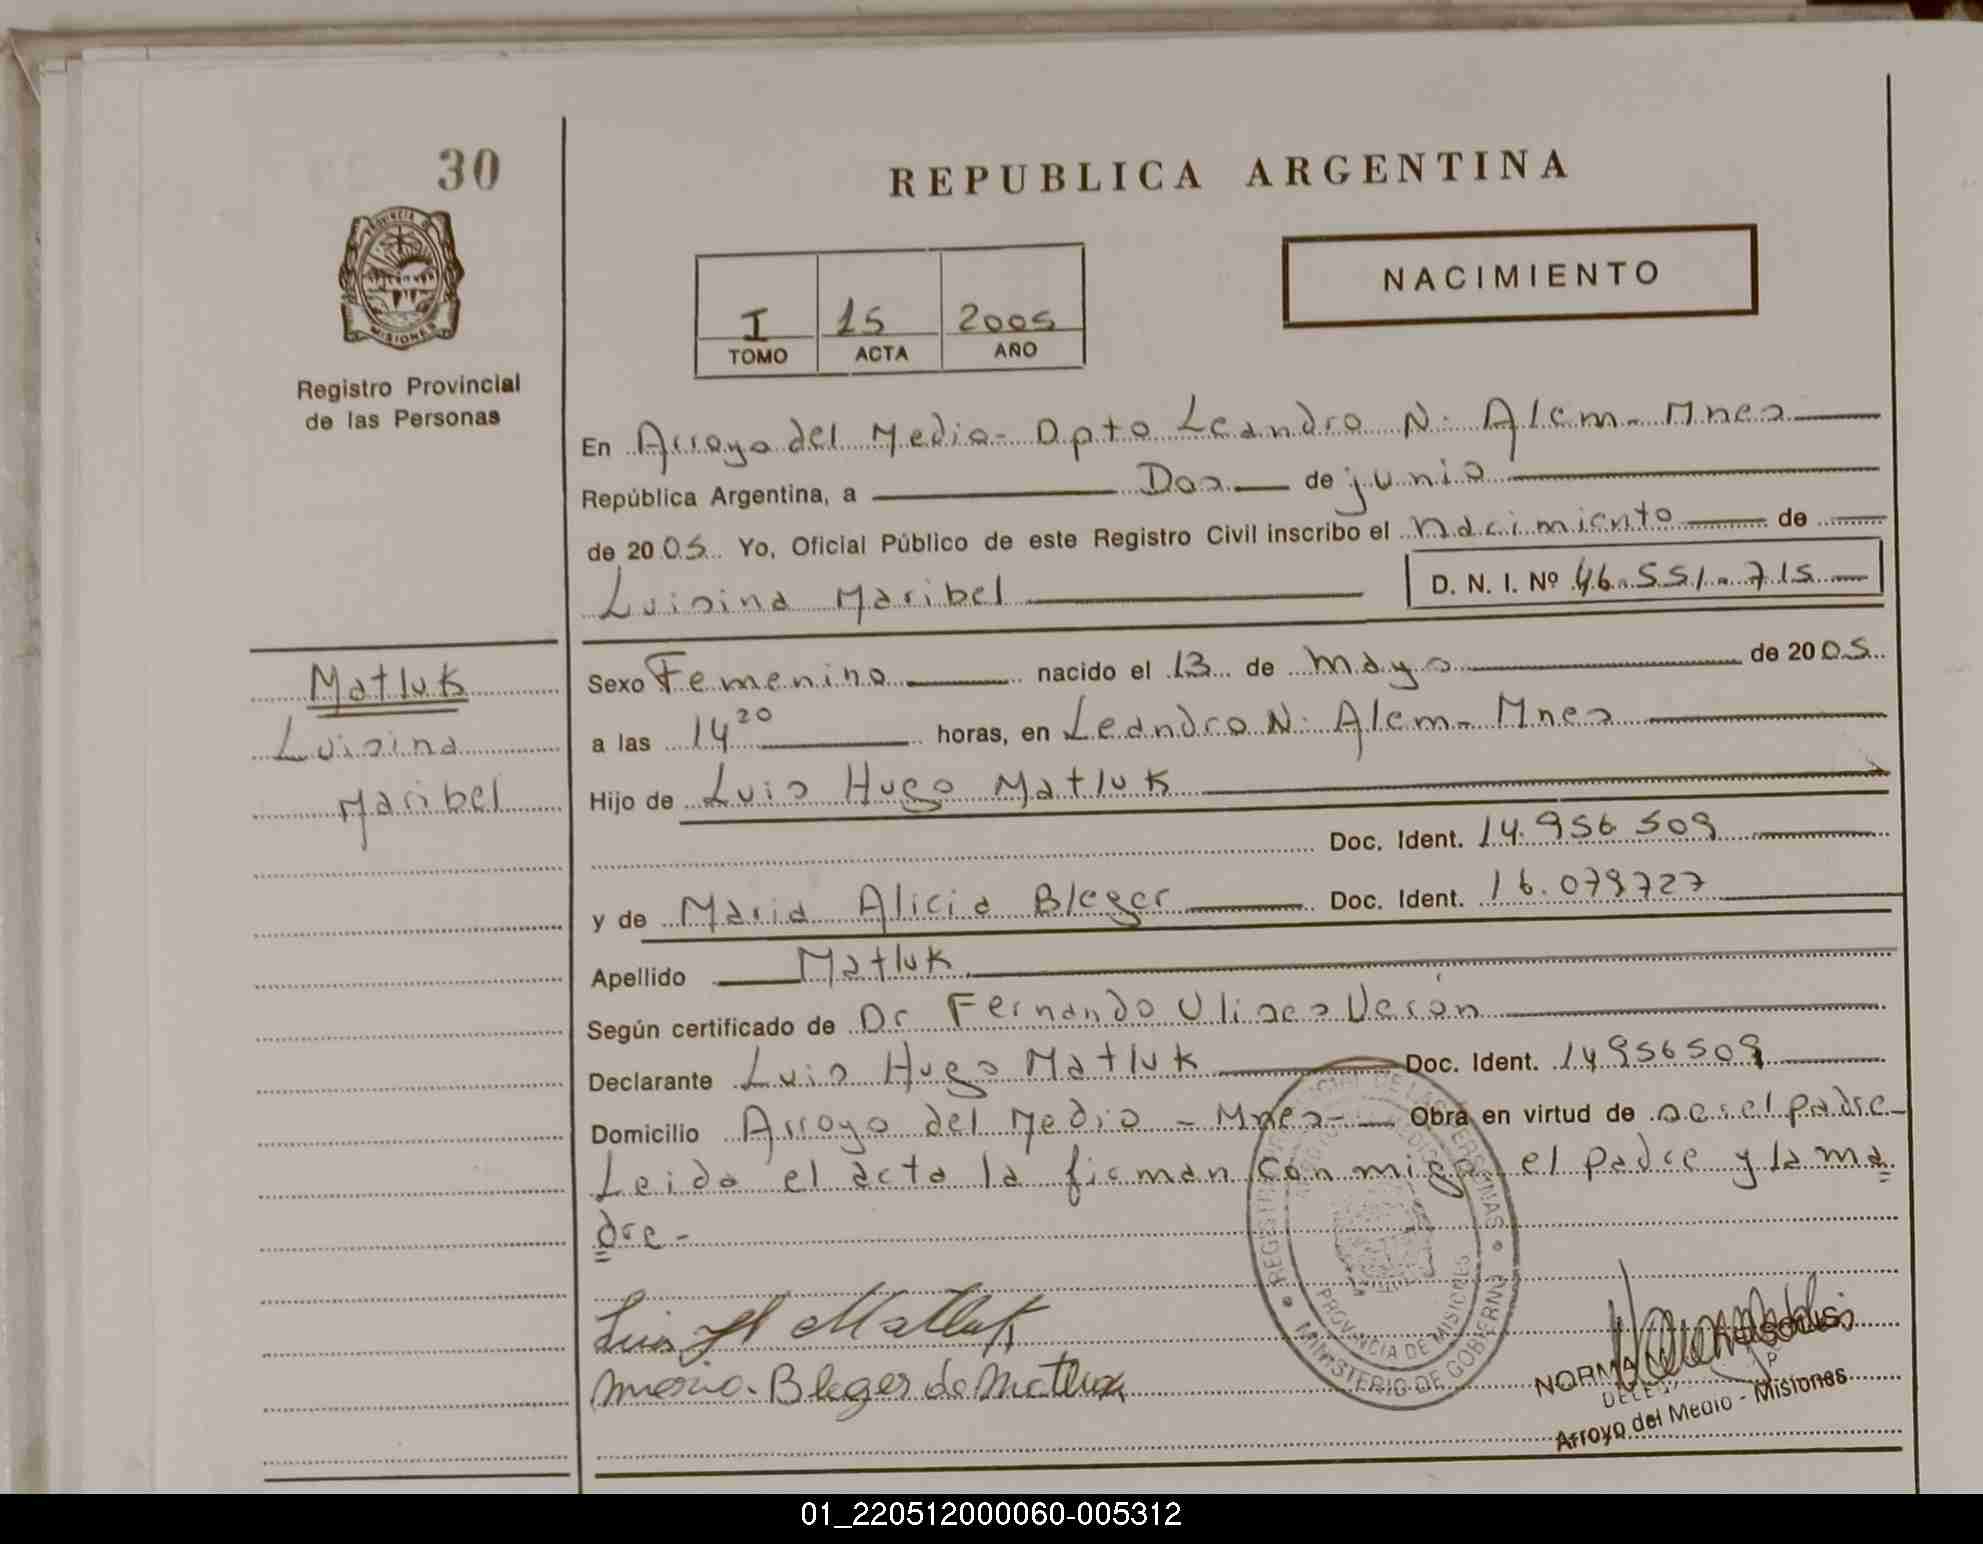 30
REPUBLICA ARGENTINA
PROVINCIA DE
MISIONES
Registro Provincial
de las Personas
NACIMIENTO
I 15 2005
TOMO ACTA AÑO
En Arroyo del Medio - Dpto Leandro N. Alem - Mnes
República Argentina, a Dos de junio
de 2005 Yo, Oficial Público de este Registro Civil inscribo el nacimiento de
Luisina Maribel D. N. I. Nº 46.551.715
Matluk
Luisina
Maribel
Sexo Femenino nacido el 13 de mayo de 2005
a las 14 20 horas, en Leandro N. Alem - Mnes
Hijo de Luis Hugo Matluk
Doc. Ident. 14.956 509
y de Maria Alicia Bleger Doc. Ident. 16.079727
Apellido Matluk
Según certificado de Dr Fernando Ulises Verón
Declarante Luis Hugo Matluk Doc. Ident. 14956509
Domicilio Arroyo del Medio - Mnes - Obra en virtud de ser el padre -
Leida el acta la firman con migo el padre y la ma
dre -
Luis H Matluk
Maria Bleger de Matluk
PROVINCIA DE MISIONES
MINISTERIO DE GOBIERNO
NORMA
Arroyo del Medio - Misiones
01_220512000060-005312